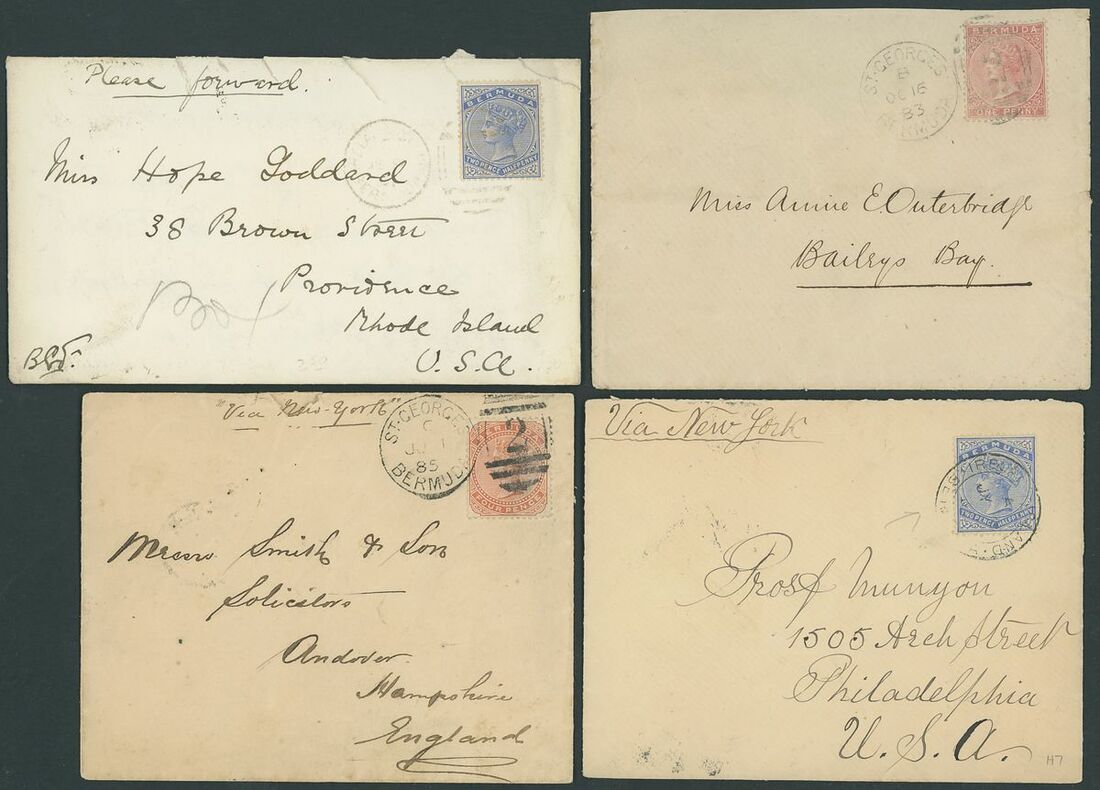 Please forward.
BERMUDA
TWO PENCE HALFPENNY
Miss Hope Goddard
38 Brown Street
Providence
Rhode Island
U.S.A.
ST. GEORGES
B
OC 16
83
BERMUDA
BERMUDA
ONE PENNY
Miss Annie E. Outerbridge
Baileys Bay.
"Via New-York"
ST. GEORGES
C
85
BERMUDA
2
FOUR PENCE
Messrs Smith & Son
Solicitors
Andover
Hampshire
England
Via New York
BERMUDA
TWO PENCE HALFPENNY
Prosf Munyon
1505 Arch Street
Philadelphia
U.S.A.
H7